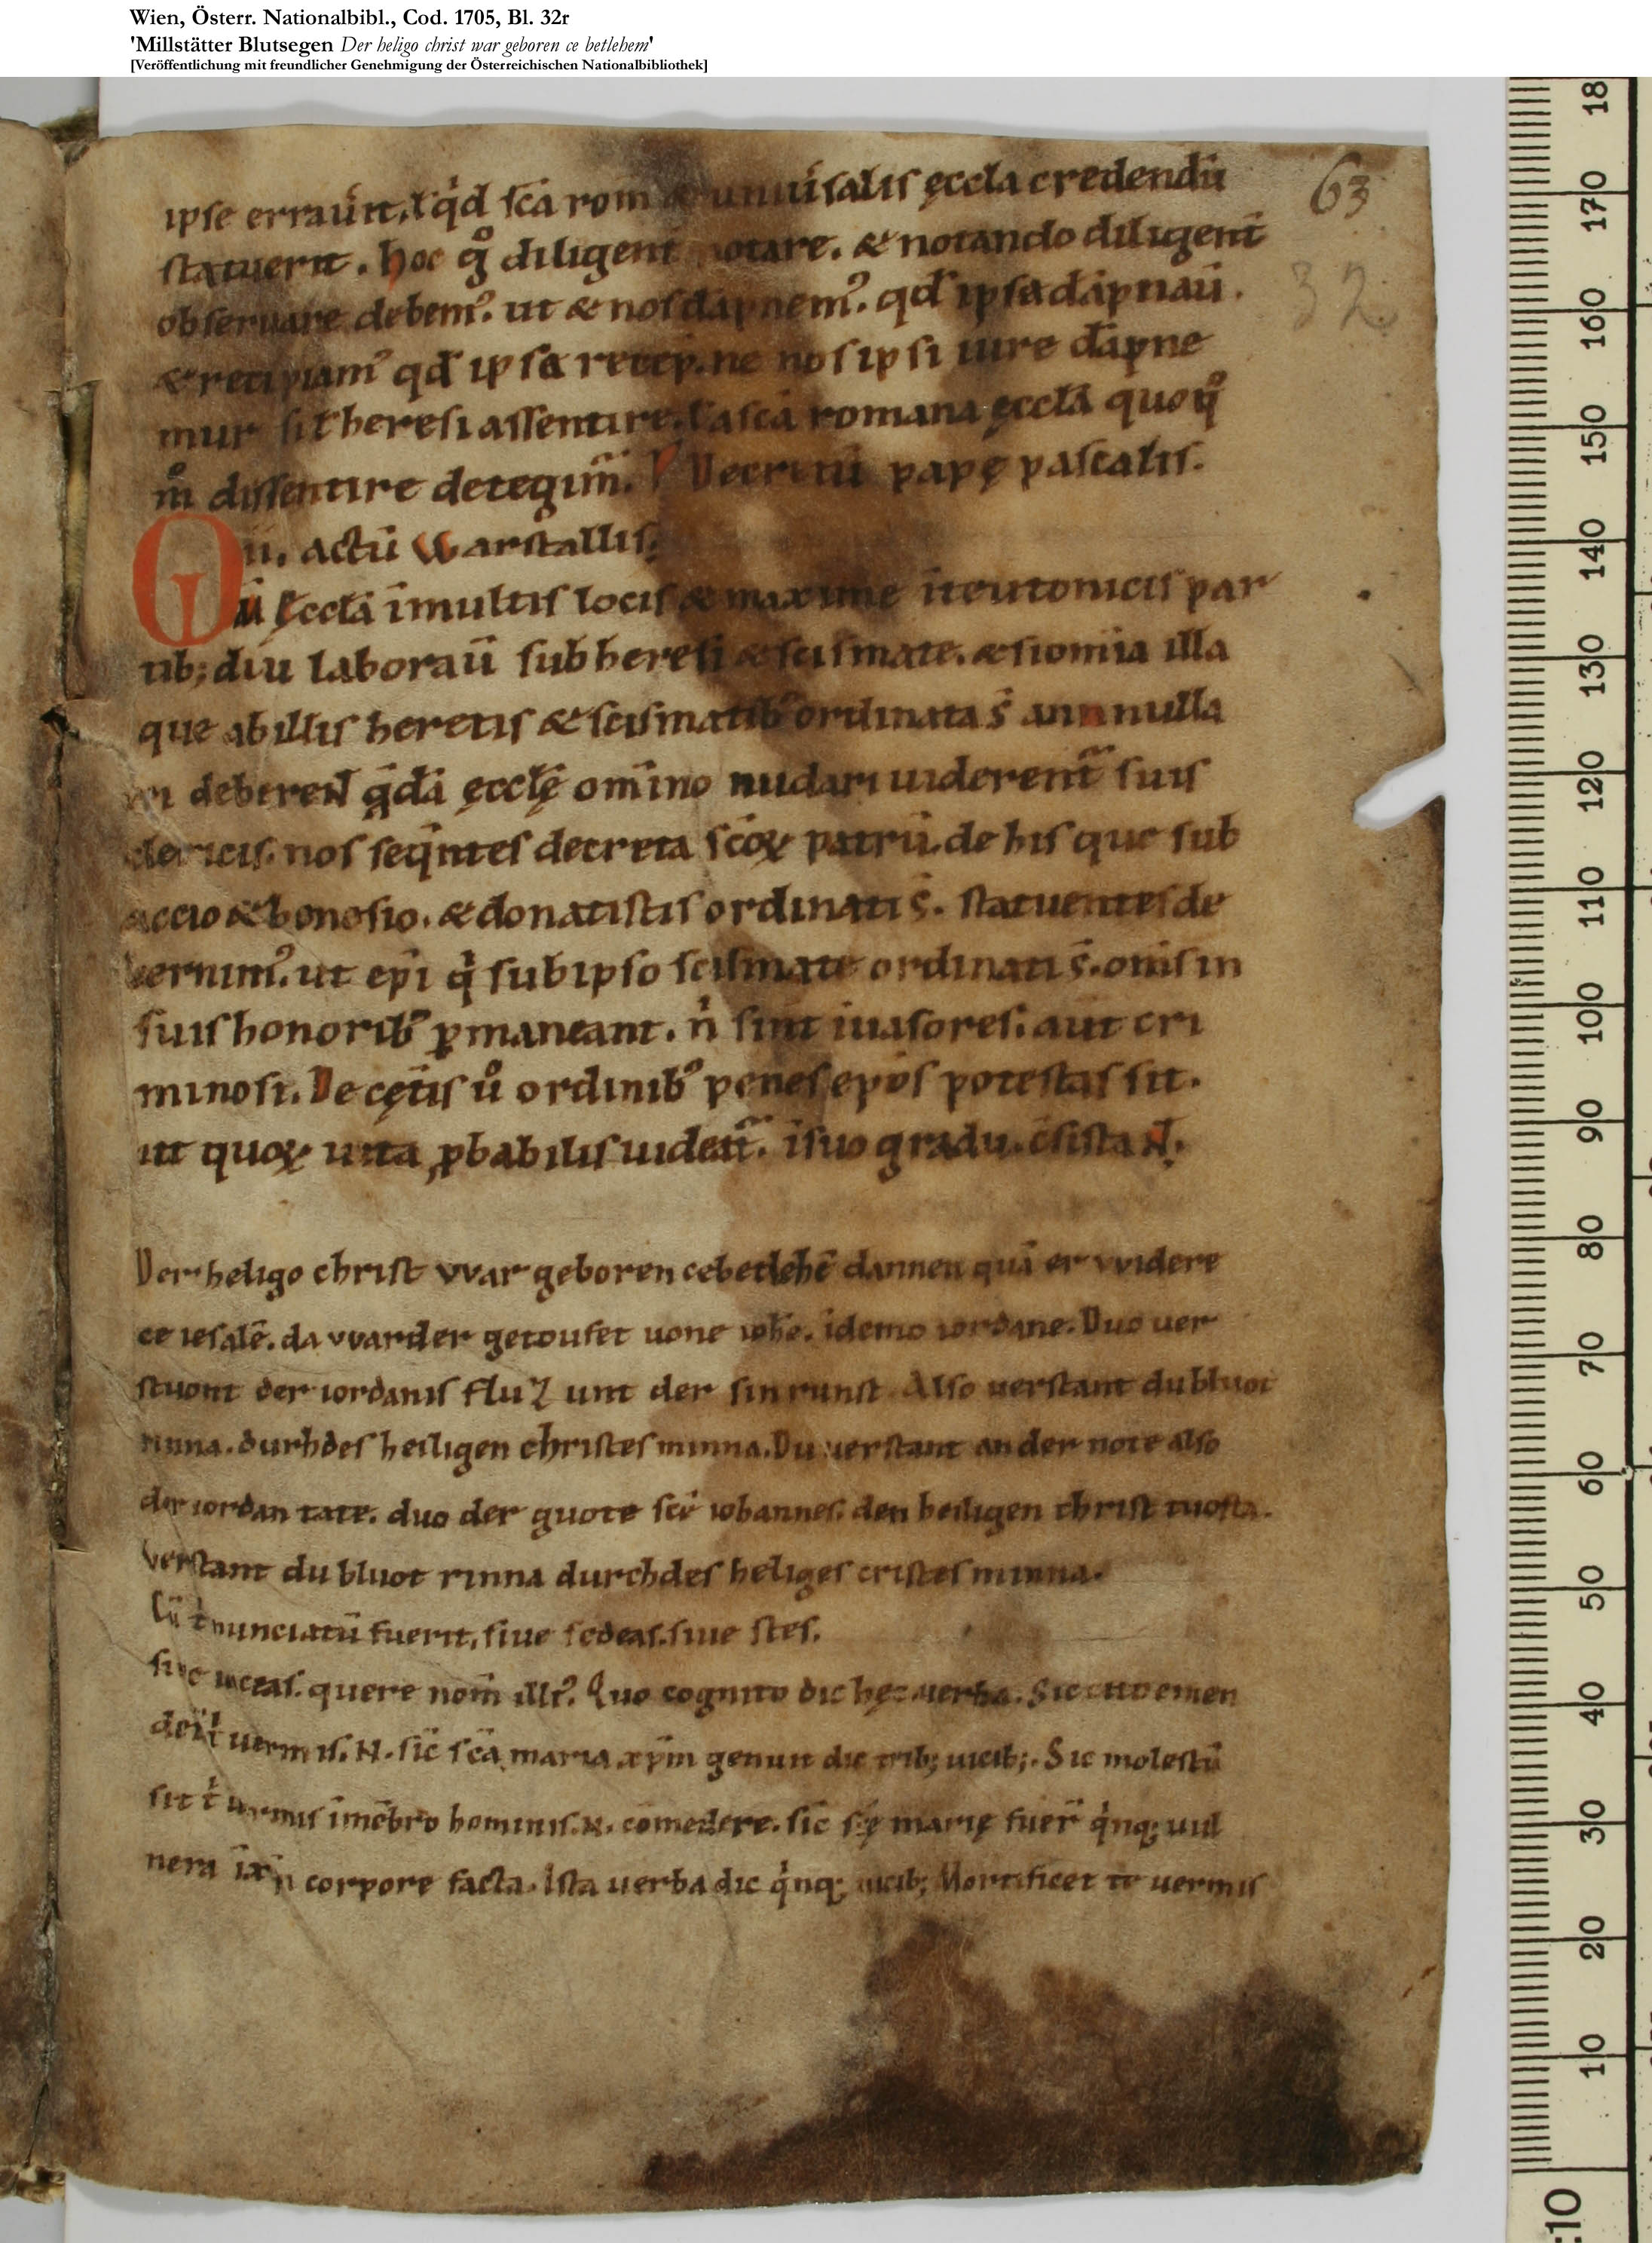 Wien, Österr. Nationalbibl., Cod. 1705, Bl. 32r
'Millstätter Blutsegen Der heligo christ war geboren ce betlehem'
[Veröffentlichung mit freundlicher Genehmigung der Österreichischen Nationalbibliothek]
63
32
ipse erraűit, ł qd sca rom & uniűsalis ęccla credendū
statuerit. hoc g° diligent notare. & notando diligent̄
obseruare debem⁹. ut & nos dāpnem⁹. qd ipsa dāpnaū.
& recipiam⁹ qd ipsa recep. ne nos ipsi iure dāpne
mur sit heresi assentire. ł a sca romana ęccla quoq°
m° dissentire detegim̄. Decretū papę pascalis.
ii. actū Warstallis.
Qū ęccla ī multis locis & maxime ī teutonicis par
tib; diu laboraū sub heresi & scismate. & si omīa illa
que ab illis heretis & scismatib⁹ ordinata s̄ annulla
ri deberent qdā ęcclę om̄ino nudari uiderent̄ suis
clericis. nos seq̄ntes decreta scoꝝ patrū. de his que sub
accio & bonosio. & donatistis ordinati s̄. statuentes de
cernim⁹. ut ep̄i q sub ipso scismate ordinati s̄. om̄s in
suis honorib⁹ ꝑmaneant. n̄ sint īuasores. aut cri
minosi. De cęt̄is u° ordinib⁹ penes ep̄os potestas sit.
ut quoꝝ uita ꝓbabilis uidet̄. ī suo gradu. c̄sistant.
Der heligo christ vvar geboren ce betlehē dannen quā er vvidere
ce ierſalē. da vvarder getoufet uone iohe. ī demo iordane. Duo uer
stuont der iordanis fluz unt der sin runst. Also uerstant du bluot
rinna. durh des heiligen christes minna. Du uerstant an der note also
der iordan tate. duo der guote sce iohannes. den heiligen christ tuofta.
Verstant du bluot rinna durch des heliges cristes minna.
Cū t̄ nunciatū fuerit, siue sedeas. siue stes.
siue iaceas. quere nom̄ illi⁹. Quo cognito dic hęc uerba. Sic
uermis. N. sic sca maria xp̄m genuit dic trib; uicib;. Sic molestū
sit t̄ uermis ī mēbro hominis. N. comedere. sic scę marię fuer̄ qnq; uul
nera ī xp̄i corpore facta. Ista uerba dic qnq; uicib; Mortificet te uermis